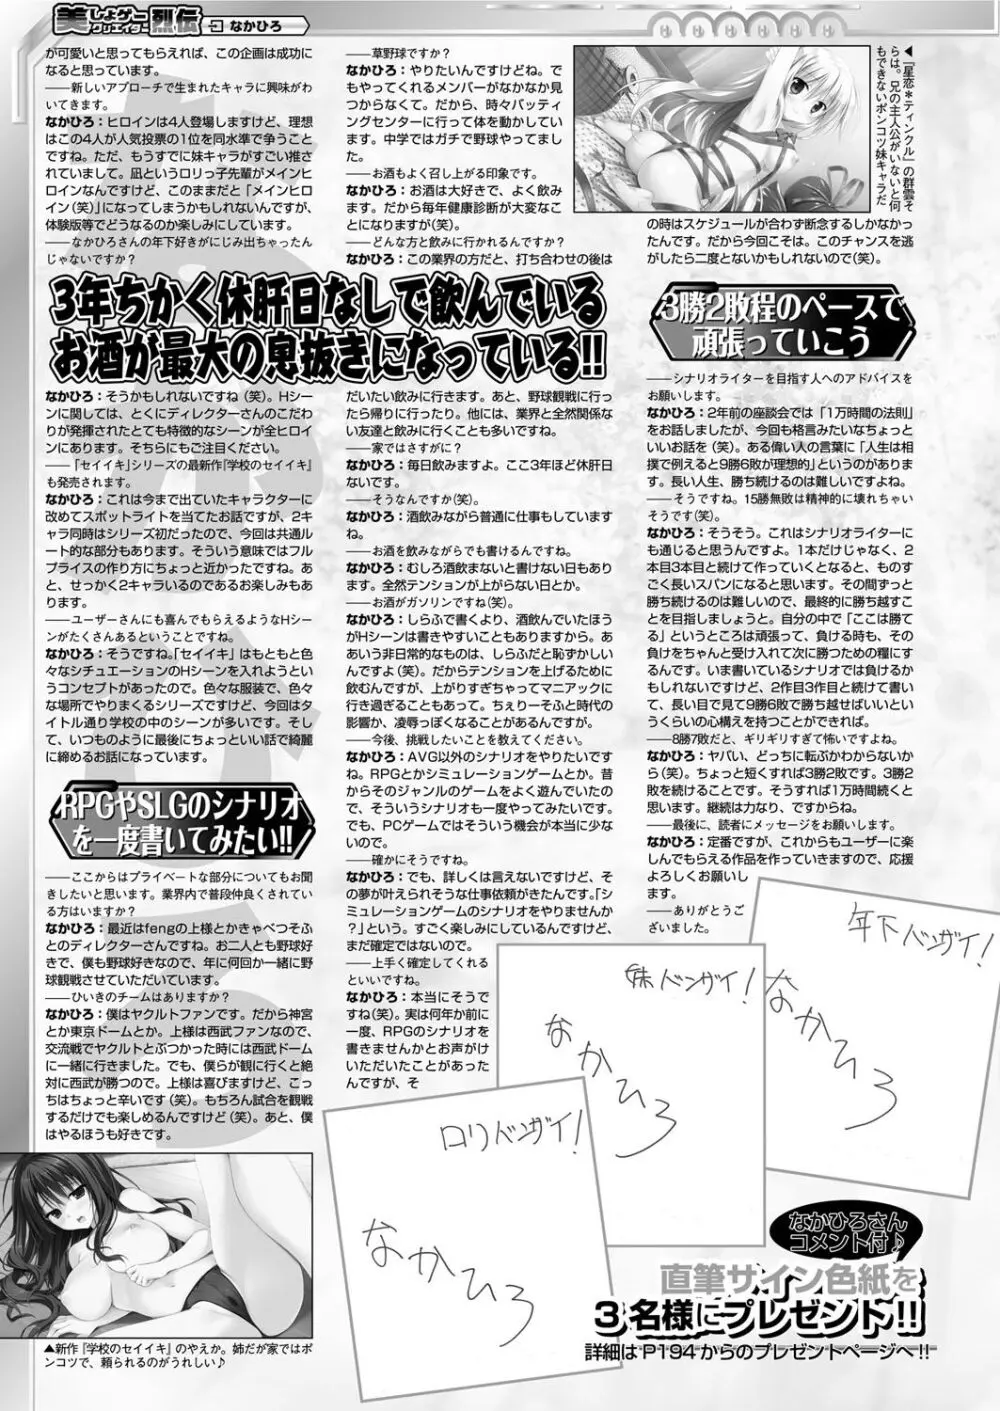 美少女ゲークリエイター烈伝 なかひろ
が可愛いと思ってもらえれば、この企画は成功に
なると思っています。
──新しいアプローチで生まれたキャラに興味がわ
いてきます。
なかひろ：ヒロインは4人登場しますけど、理想
はこの4人が人気投票の1位を同水準で争うこと
ですね。ただ、もうすでに妹キャラがすごい推さ
れていまして。凪というロリっ子先輩がメインヒ
ロインなんですけど、このままだと「メインヒロ
イン（笑）」になってしまうかもしれないんですが、
体験版等でどうなるのか楽しみにしています。
──なかひろさんの年下好きがにじみ出ちゃったん
じゃないですか？
3年ちかく休肝日なしで飲んでいる
お酒が最大の息抜きになっている!!
なかひろ：そうかもしれないですね（笑）。Hシー
ンに関しては、とくにディレクターさんのこだわ
りが発揮されたとても特徴的なシーンが全ヒロイ
ンにあります。そちらにもご注目ください。
──「セイイキ」シリーズの最新作『学校のセイイキ』
も発売されます。
なかひろ：これは今まで出ていたキャラクターに
改めてスポットライトを当てたお話ですが、2キ
ャラ同時はシリーズ初だったので、今回は共通ル
ート的な部分もあります。そういう意味ではフル
プライスの作り方にちょっと近かったですね。あ
と、せっかく2キャラいるのであるお楽しみもあ
ります。
──ユーザーさんにも喜んでもらえるようなHシー
ンがたくさんあるということですね。
なかひろ：そうですね。「セイイキ」はもともと色
々なシチュエーションのHシーンを入れようとい
うコンセプトがあったので。色々な服装で、色々
な場所でやりまくるシリーズですけど、今回はタ
イトル通り学校の中のシーンが多いです。そし
て、いつものように最後にちょっといい話で綺麗
に締めるお話になっています。
RPGやSLGのシナリオ
を一度書いてみたい!!
──ここからはプライベートな部分についてもお聞
きしたいと思います。業界内で普段仲良くされてい
る方はいますか？
なかひろ：最近はfengの上様とかきゃべつそふ
とのディレクターさんですね。お二人とも野球好
きで、僕も野球好きなので、年に何回か一緒に野
球観戦させていただいています。
──ひいきのチームはありますか？
なかひろ：僕はヤクルトファンです。だから神宮
とか東京ドームとか。上様は西武ファンなので、
交流戦でヤクルトとぶつかった時には西武ドーム
に一緒に行きました。でも、僕らが観に行くと絶
対に西武が勝つので。上様は喜びますけど、こっ
ちはちょっと辛いです（笑）。もちろん試合を観戦
するだけでも楽しめるんですけど（笑）。あと、僕
はやるほうも好きです。
▲新作『学校のセイイキ』のやえか。姉だが家ではポ
ンコツで、頼られるのがうれしい♪
──草野球ですか？
なかひろ：やりたいんですけどね。で
もやってくれるメンバーがなかなか見
つからなくて。だから、時々バッティ
ングセンターに行って体を動かしてい
ます。中学ではガチで野球やってまし
た。
──お酒もよく召し上がる印象です。
なかひろ：お酒は大好きで、よく飲み
ます。だから毎年健康診断が大変なこ
とになりますが（笑）。
──どんな方と飲みに行かれるんですか？
なかひろ：この業界の方だと、打ち合わせの後は
だいたい飲みに行きます。あと、野球観戦に行っ
たら帰りに行ったり。他には、業界と全然関係な
い友達と飲みに行くことも多いですね。
──家ではさすがに？
なかひろ：毎日飲みますよ。ここ3年ほど休肝日
ないです。
──そうなんですか（笑）。
なかひろ：酒飲みながら普通に仕事もしています
ね。
──お酒を飲みながらでも書けるんですね。
なかひろ：むしろ酒飲まないと書けない日もあり
ます。全然テンションが上がらない日とか。
──お酒がガソリンですね（笑）。
なかひろ：しらふで書くより、酒飲んでいたほう
がHシーンは書きやすいこともありますから。あ
あいう非日常的なものは、しらふだと恥ずかしい
んですよ（笑）。だからテンションを上げるために
飲むんですが、上がりすぎちゃってマニアックに
行き過ぎることもあって。ちぇりーそふと時代の
影響か、凌辱っぽくなることがあるんですが。
──今後、挑戦したいことを教えてください。
なかひろ：AVG以外のシナリオをやりたいです
ね。RPGとかシミュレーションゲームとか。昔
からそのジャンルのゲームをよく遊んでいたの
で、そういうシナリオも一度やってみたいです。
でも、PCゲームではそういう機会が本当に少な
いので。
──確かにそうですね。
なかひろ：でも、詳しくは言えないですけど、そ
の夢が叶えられそうな仕事依頼がきたんです。「シ
ミュレーションゲームのシナリオをやりませんか
？」という。すごく楽しみにしているんですけど、
まだ確定ではないので。
──上手く確定してくれると
いいですね。
なかひろ：本当にそうで
すね（笑）。実は何年か前に
一度、RPGのシナリオを
書きませんかとお声がけ
いただいたことがあった
んですが、そ
◀『星恋＊ティンクル』の群雲そ
らは。兄の主人公がいないと何
もできないポンコツ妹キャラだ
の時はスケジュールが合わず断念するしかなかっ
たんです。だから今回こそは。このチャンスを逃
がしたら二度とないかもしれないので（笑）。
3勝2敗程のペースで
頑張っていこう
──シナリオライターを目指す人へのアドバイスを
お願いします。
なかひろ：2年前の座談会では「1万時間の法則」
をお話しましたが、今回も格言みたいなちょっと
いいお話を（笑）。ある偉い人の言葉に「人生は相
撲で例えると9勝6敗が理想的」というのがありま
す。長い人生、勝ち続けるのは難しいですよね。
──そうですね。15勝無敗は精神的に壊れちゃい
そうです（笑）。
なかひろ：そうそう。これはシナリオライターに
も通じると思うんですよ。1本だけじゃなく、2
本目3本目と続けて作っていくとなると、ものす
ごく長いスパンになると思います。その間ずっと
勝ち続けるのは難しいので、最終的に勝ち越すこ
とを目指しましょうと。自分の中で「ここは勝て
る」というところは頑張って、負ける時も、その
負けをちゃんと受け入れて次に勝つための糧にす
るんです。いま書いているシナリオでは負けるか
もしれないですけど、2作目3作目と続けて書い
て、長い目で見て9勝6敗で勝ち越せばいいとい
うくらいの心構えを持つことができれば。
──8勝7敗だと、ギリギリすぎて怖いですよね。
なかひろ：ヤバい、どっちに転ぶかわからないか
ら（笑）。ちょっと短くすれば3勝2敗です。3勝2
敗を続けることです。そうすれば1万時間続くと
思います。継続は力なり、ですからね。
──最後に、読者にメッセージをお願いします。
なかひろ：定番ですが、これからもユーザーに楽
しんでもらえる作品を作っていきますので、応援
よろしくお願いし
ます。
──ありがとうご
ざいました。
年下バンザイ！
なかひろ
妹バンザイ！
なかひろ
ロリバンザイ！
なかひろ
なかひろさん
コメント付♪
直筆サイン色紙を
3名様にプレゼント!!
詳細はP194からのプレゼントページへ!!